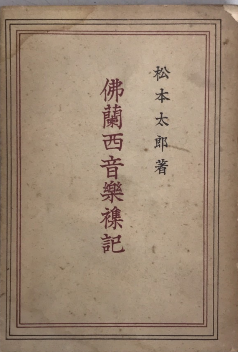 松本太郎著
佛蘭西音樂襍記